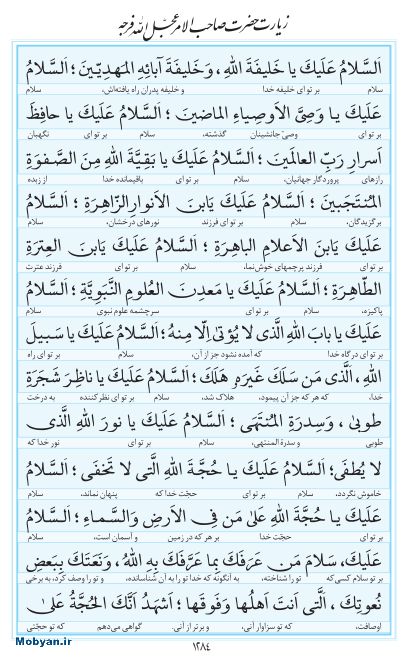 زیارت حضرت صاحب الامر عجل الله فرجه
اَلسَّلامُ عَلَیکَ یا خَلیفَةَ اللهِ، وَ خَلیفَةَ آبائِهِ المَهدِیّینَ؛ اَلسَّلامُ
سلام بر تو ای خلیفه خدا و خلیفه پدران راه یافته‌اش، سلام
عَلَیکَ یا وَصِیَّ الاَوصِیاءِ الماضینَ؛ اَلسَّلامُ عَلَیکَ یا حافِظَ
بر تو ای وصیّ جانشینان گذشته، سلام بر تو ای نگهبان
اَسرارِ رَبِّ العالَمینَ؛ اَلسَّلامُ عَلَیکَ یا بَقِیَّةَ اللهِ مِنَ الصَّفوَةِ
رازهای پروردگار جهانیان، سلام بر تو ای باقیمانده خدا از زبده
المُنتَجَبینَ؛ اَلسَّلامُ عَلَیکَ یَابنَ الاَنوارِ الزّاهِرَةِ؛ اَلسَّلامُ
برگزیدگان، سلام بر تو ای فرزند نورهای درخشان، سلام
عَلَیکَ یَابنَ الاَعلامِ الباهِرَةِ؛ اَلسَّلامُ عَلَیکَ یَابنَ العِترَةِ
بر تو ای فرزند پرچمهای خوش‌نما، سلام بر تو ای فرزند عترت
الطّاهِرَةِ؛ اَلسَّلامُ عَلَیکَ یا مَعدِنَ العُلومِ النَّبَوِیَّةِ؛ اَلسَّلامُ
پاکیزه، سلام بر تو ای سرچشمه علوم نبوی سلام
عَلَیکَ یا بابَ اللهِ الَّذی لا یُؤتیٰ اِلّا مِنهُ؛ اَلسَّلامُ عَلَیکَ یا سَبیلَ
بر تو ای درگاه خدا که آمده نشود جز از آن، سلام بر تو ای راه
اللهِ، اَلَّذی مَن سَلَکَ غَیرَهُ هَلَکَ؛ اَلسَّلامُ عَلَیکَ یا ناظِرَ شَجَرَةِ
خدا، که هر که جز آن پیمود، هلاک شد، سلام بر تو ای نظرکننده به درخت
طوبیٰ، وَ سِدرَةِ المُنتَهیٰ؛ اَلسَّلامُ عَلَیکَ یا نورَ اللهِ الَّذی
طوبی و سدرة المنتهی، سلام بر تو ای نور خدا که
لا یُطفیٰ؛ اَلسَّلامُ عَلَیکَ یا حُجَّةَ اللهِ الَّتی لا تَخفیٰ؛ اَلسَّلامُ
خاموش نگردد، سلام بر تو ای حجّت خدا که پنهان نماند، سلام
عَلَیکَ یا حُجَّةَ اللهِ عَلیٰ مَن فِی الاَرضِ وَالسَّماءِ؛ اَلسَّلامُ
بر تو ای حجّت خدا بر هر که در زمین و آسمان است، سلام
عَلَیکَ، سَلامَ مَن عَرَفَکَ بِما عَرَّفَکَ بِهِ اللهُ، وَ نَعَتَکَ بِبَعضِ
بر تو سلام کسی که تو را شناخته، به آنگونه که خدا تو را به آن شناسانده، و تو را وصف کرد، به برخی
نُعوتِکَ، الَّتی اَنتَ اَهلُها وَ فَوقَها؛ اَشهَدُ اَنَّکَ الحُجَّةُ عَلیٰ
اوصافت، که تو سزاوار آنی، و برتر از آنی. گواهی می‌دهم که تو حجّتی
۱۲۸۴
Mobyan.ir